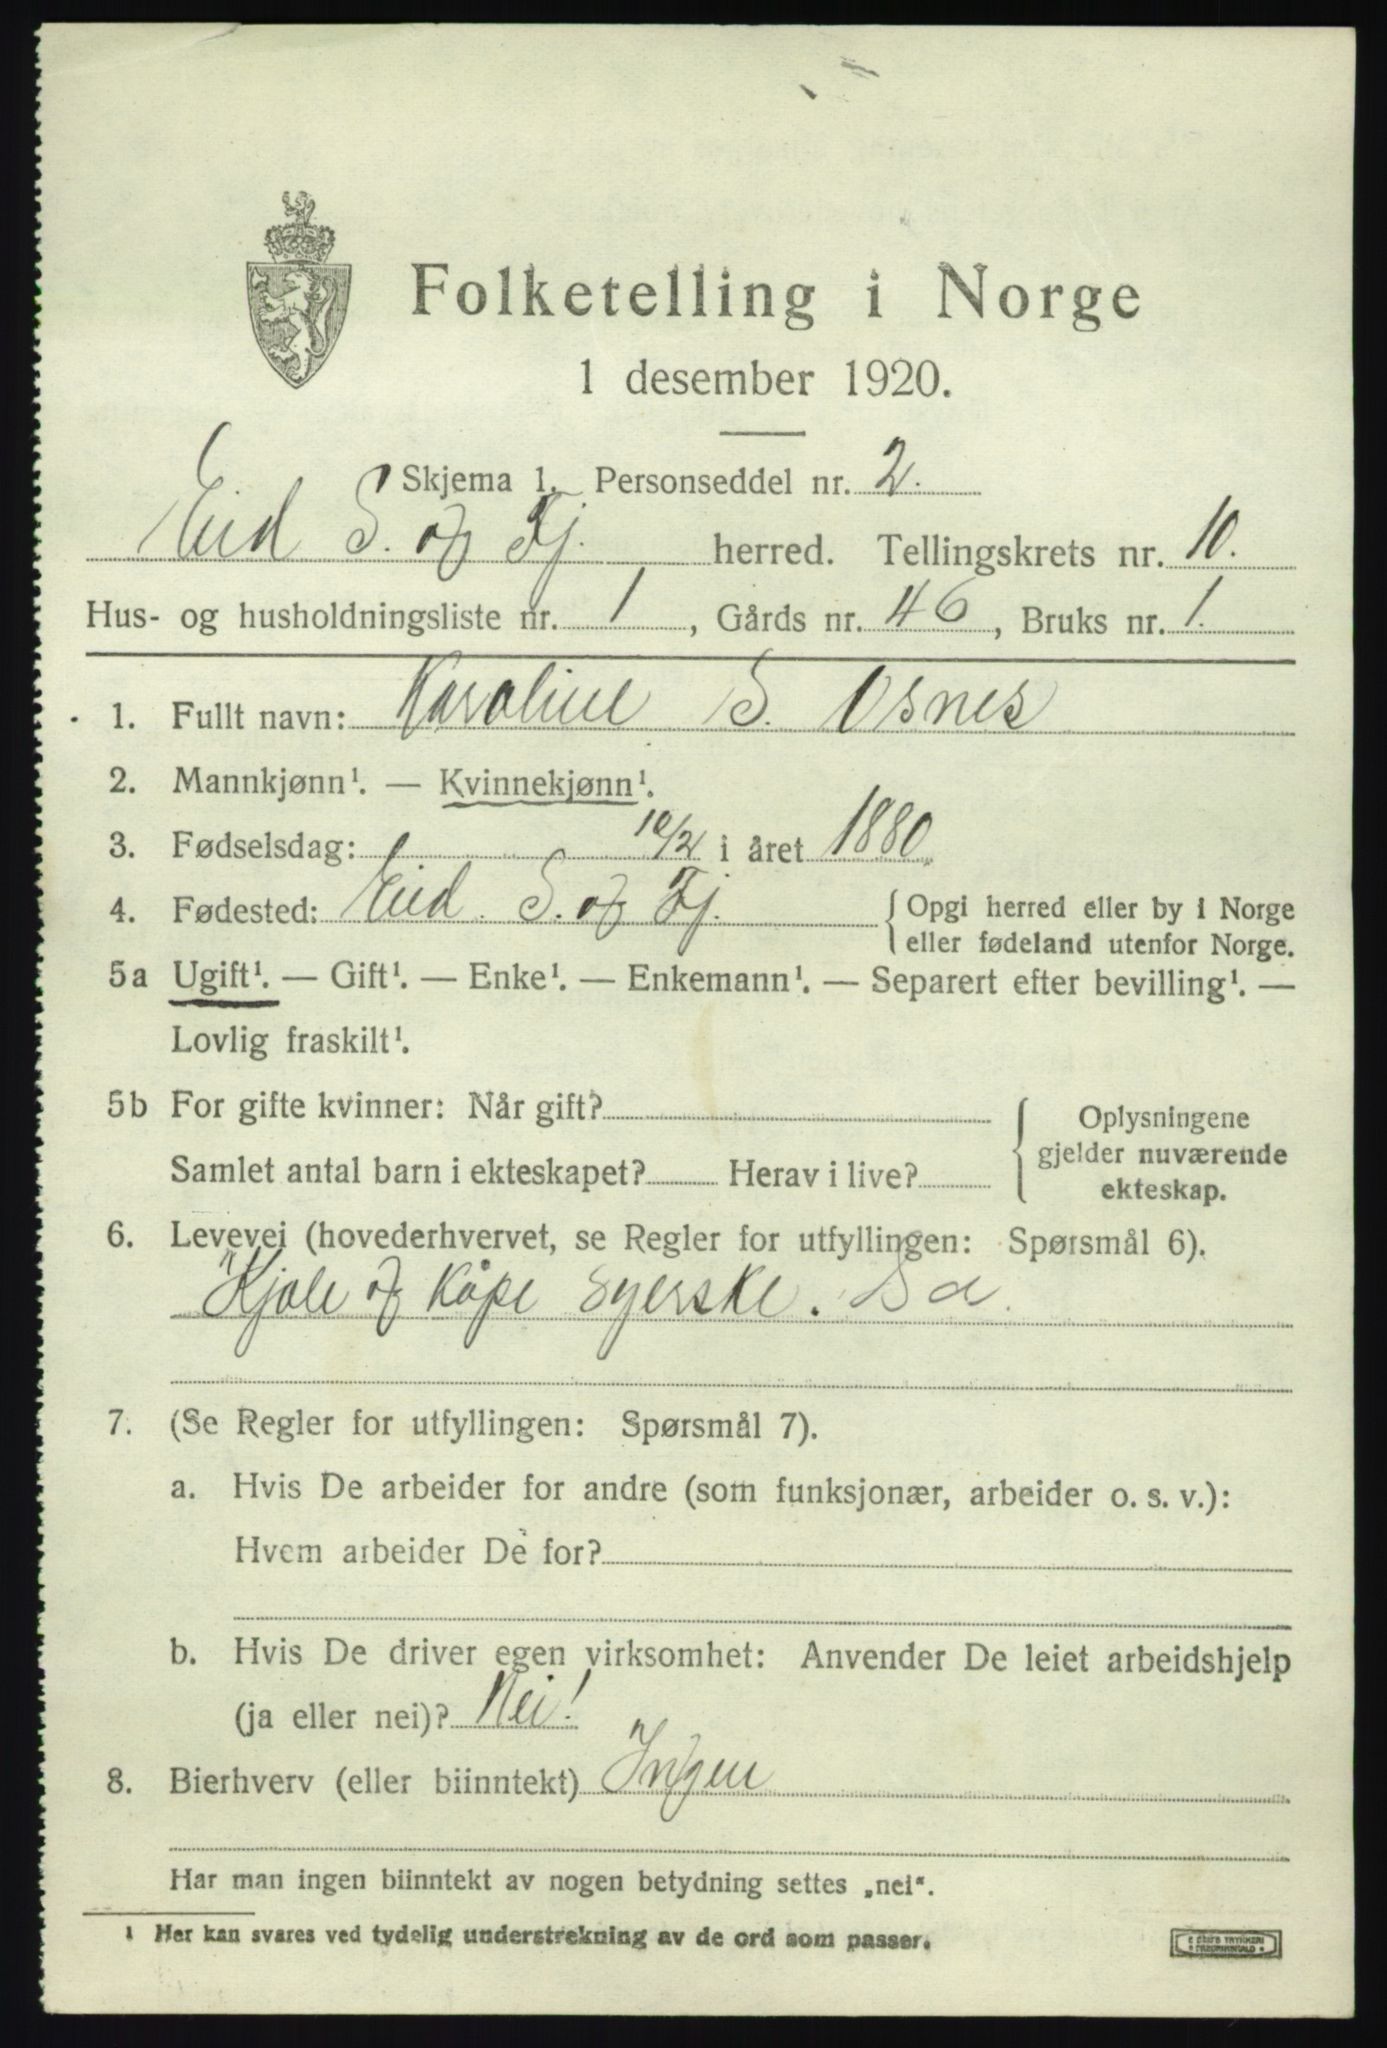 Folketelling i Norge
1 desember 1920.
Skjema 1. Personseddel nr. 2.
Eid S. og Fj. herred. Tellingskrets nr. 10.
Hus- og husholdningsliste nr. 1, Gårds nr. 46, Bruks nr. 1.
1. Fullt navn: Karoline S. Osnes
2. Mannkjønn¹. — Kvinnekjønn¹.
3. Fødselsdag: 10/2 i året 1880
4. Fødested: Eid S. og Fj. Opgi herred eller by i Norge
eller fødeland utenfor Norge.
5a Ugift¹. — Gift¹. — Enke¹. — Enkemann¹. — Separert efter bevilling¹. —
Lovlig fraskilt¹.
5b For gifte kvinner: Når gift?
Samlet antal barn i ekteskapet? Herav i live?
Oplysningene
gjelder nuværende
ekteskap.
6. Levevei (hovederhvervet, se Regler for utfyllingen: Spørsmål 6).
Kjole og Kåpe syerske.
7. (Se Regler for utfyllingen: Spørsmål 7).
a. Hvis De arbeider for andre (som funksjonær, arbeider o. s. v.):
Hvem arbeider De for?
b. Hvis De driver egen virksomhet: Anvender De leiet arbeidshjelp
(ja eller nei)? Nei!
8. Bierhverv (eller biinntekt) Ingen
Har man ingen biinntekt av nogen betydning settes „nei“.
¹ Her kan svares ved tydelig understrekning av de ord som passer.